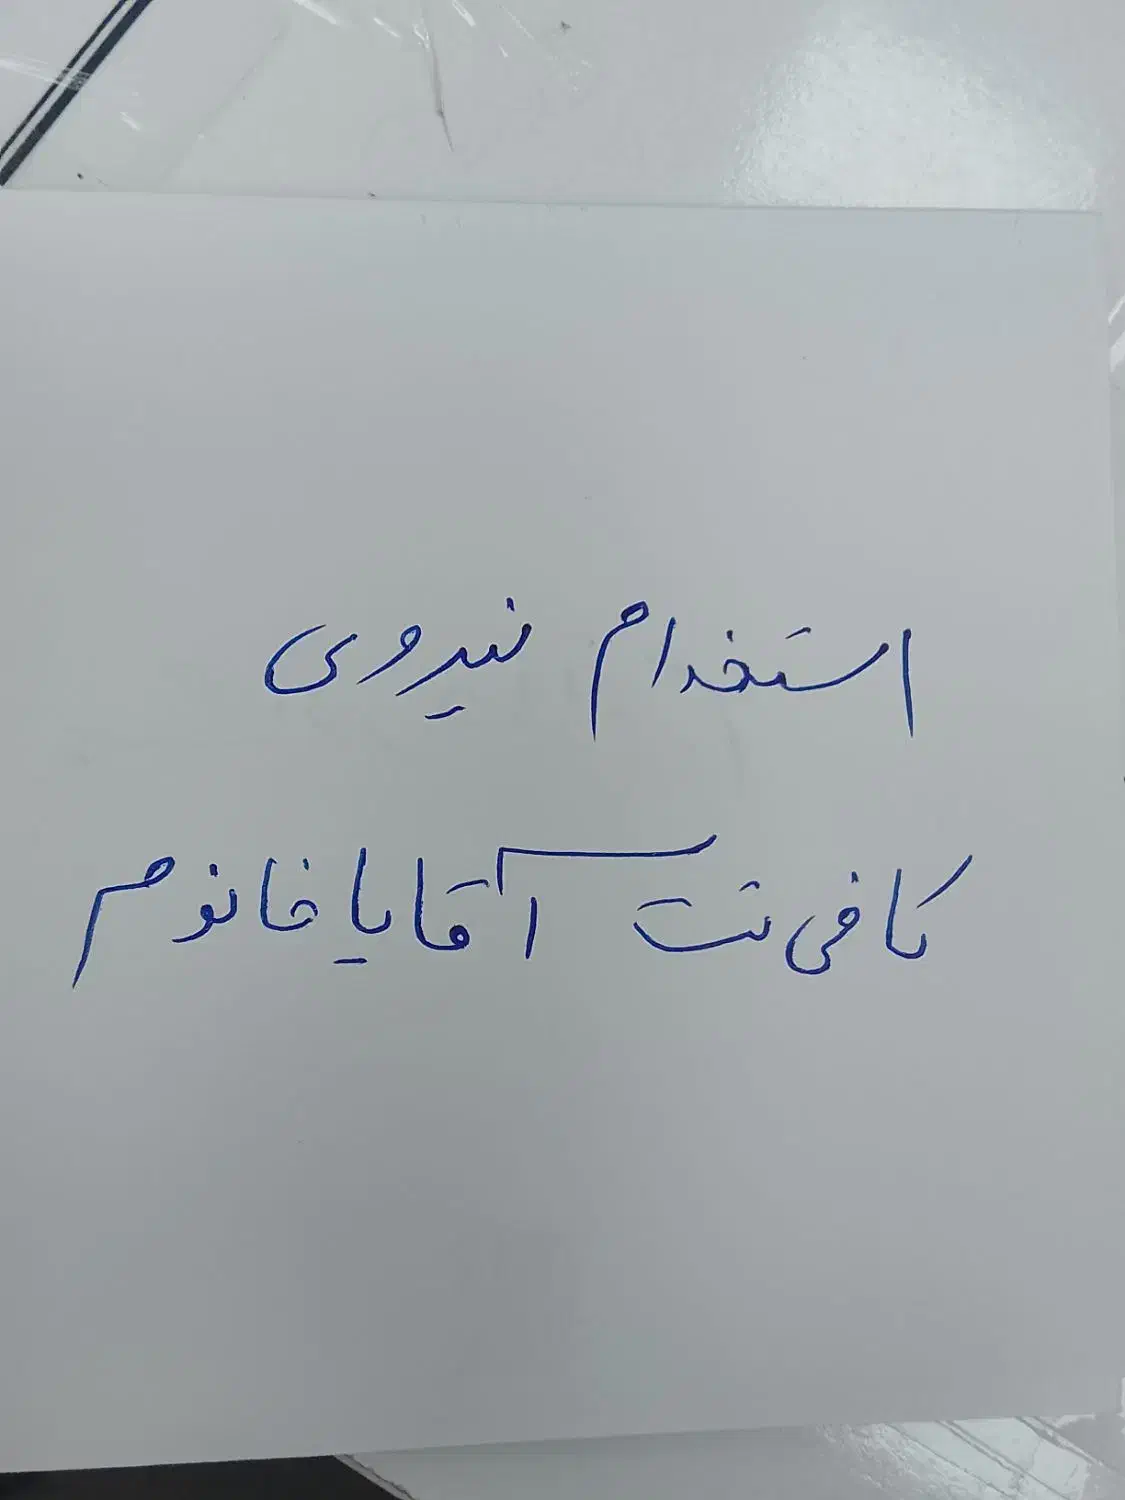 استخدام نیروی
کافی نت آقا یا خانوم